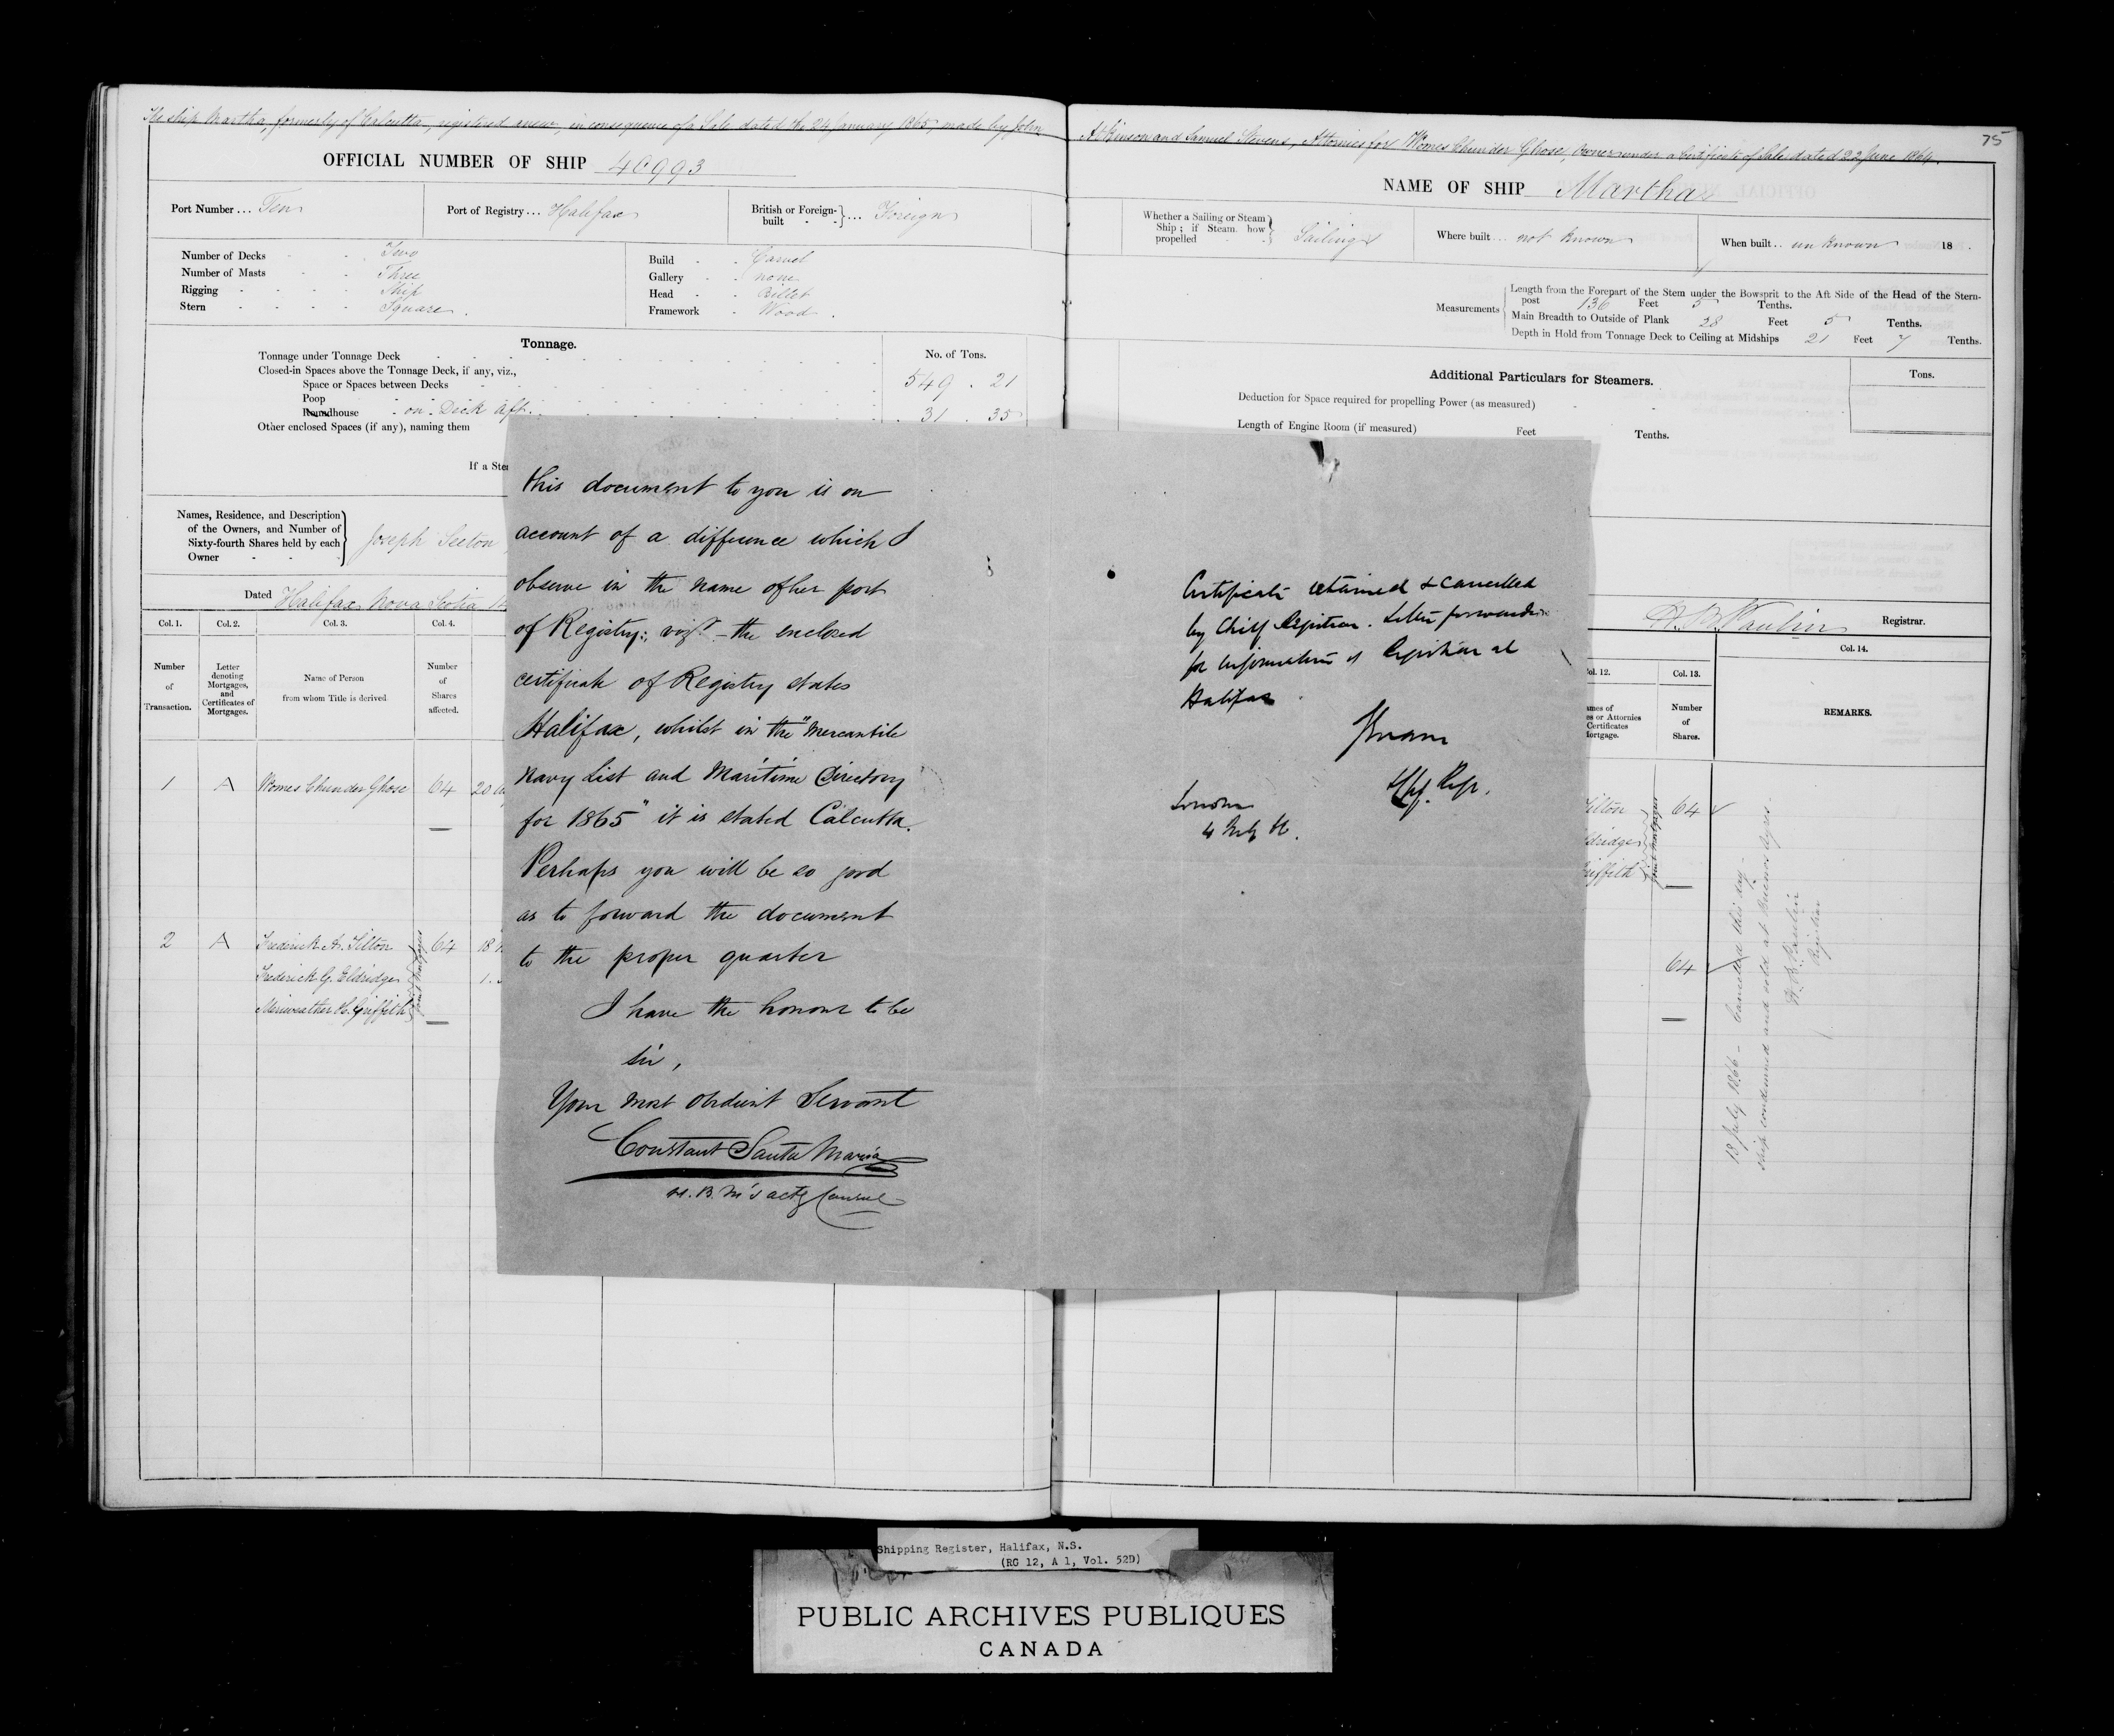 The ship Martha, formerly of Calcutta, registered anew, in consequence of a Sale dated the 24 January 1865, made by John
Atkinson and Samuel Stevens, Attornies for Womes Chunder Ghose, Owner under a Certificate of Sale dated 22 June 1864.
75
OFFICIAL NUMBER OF SHIP 40993
NAME OF SHIP Martha
Port Number... Ten
Port of Registry... Halifax
British or Foreign-built }... Foreign
Whether a Sailing or Steam Ship; if Steam how propelled } Sailing
Where built... not known
When built.. unknown 18
Number of Decks Two
Number of Masts Three
Rigging Ship
Stern Square.
Build Carvel
Gallery none
Head Billet
Framework Wood.
Measurements
Length from the Forepart of the Stem under the Bowsprit to the Aft Side of the Head of the Stern-
post 136 Feet 5 Tenths.
Main Breadth to Outside of Plank 28 Feet 5 Tenths.
Depth in Hold from Tonnage Deck to Ceiling at Midships 21 Feet 7 Tenths.
Tonnage.
No. of Tons.
Tonnage under Tonnage Deck
Closed-in Spaces above the Tonnage Deck, if any, viz.,
Space or Spaces between Decks 549. 21
Poop
Roundhouse on Deck aft. 31. 35
Other enclosed Spaces (if any), naming them
If a Ste
Additional Particulars for Steamers.
Tons.
Deduction for Space required for propelling Power (as measured)
Length of Engine Room (if measured) Feet Tenths.
Names, Residence, and Description
of the Owners, and Number of
Sixty-fourth Shares held by each
Owner
Joseph Seeton
Dated Halifax Nova Scotia
Registrar.
Col. 1.
Col. 2.
Col. 3.
Col. 4.
Number of Transaction.
Letter denoting Mortgages, and Certificates of Mortgages.
Name of Person from whom Title is derived
Number of Shares affected.
1 A Womes Chunder Ghose 64 20
2 A Frederick A. Tilton 64 18
Frederick G. Eldridge 1.
Meriweather H. Griffith
this document to you is on
account of a difference which I
observe in the name of her port
of Registry: vizt - the enclosed
certificate of Registry states
Halifax, whilst in the "Mercantile
Navy List and Maritime Directory
for 1865" it is stated Calcutta.
Perhaps you will be so good
as to forward the document
to the proper quarter
I have the honour to be
Sir,
Your most obedient Servant
Constant Santa Maria
H. B. M's actg Consul
Certificate retained & cancelled
by Chief Registrar. Letter forwarded
for information of Registrar at
Halifax.
London
H. B. Paulin
ol. 12.
Col. 13.
Col. 14.
ames of
es or Attornies
Certificates
ortgage.
Number of Shares.
REMARKS.
ilton 64
ldridge
riffith
Joint Mortgagees
64
13 July 1866 - Cancelled this day -
Ship condemned and sold at Buenos Ayres.
H. B. Paulin
Registrar
Shipping Register, Halifax, N.S.
(RG 12, A 1, Vol. 52D)
PUBLIC ARCHIVES PUBLIQUES
CANADA